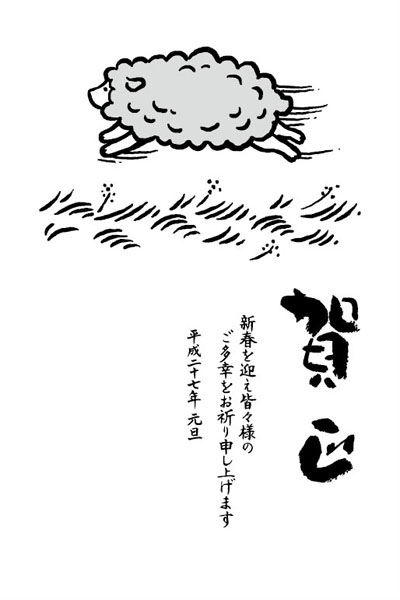 賀正
新春を迎え皆々様の
ご多幸をお祈り申し上げます
平成二十七年 元旦